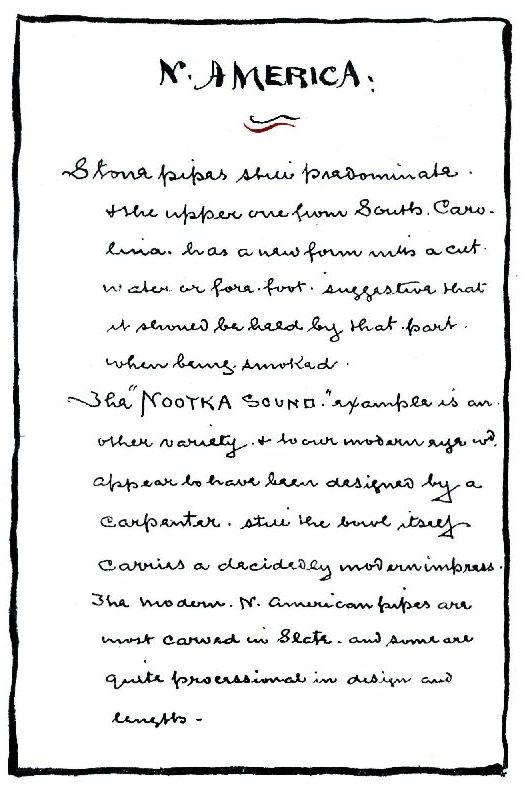 N. AMERICA.
Stone pipes still predominate.
& the upper one from South. Caro-
lina. has a new form with a cut.
water or fore. foot. suggestive that
it should be held by that. part.
when being. smoked.
The "NOOTKA SOUND." example is an-
other variety. & to our modern eye wd.
appear to have been designed by a
carpenter. still the bowl itself
carries a decidedly modern impress.
The modern. N. American pipes are
most carved in Slate. and some are
quite processional in design and
length -